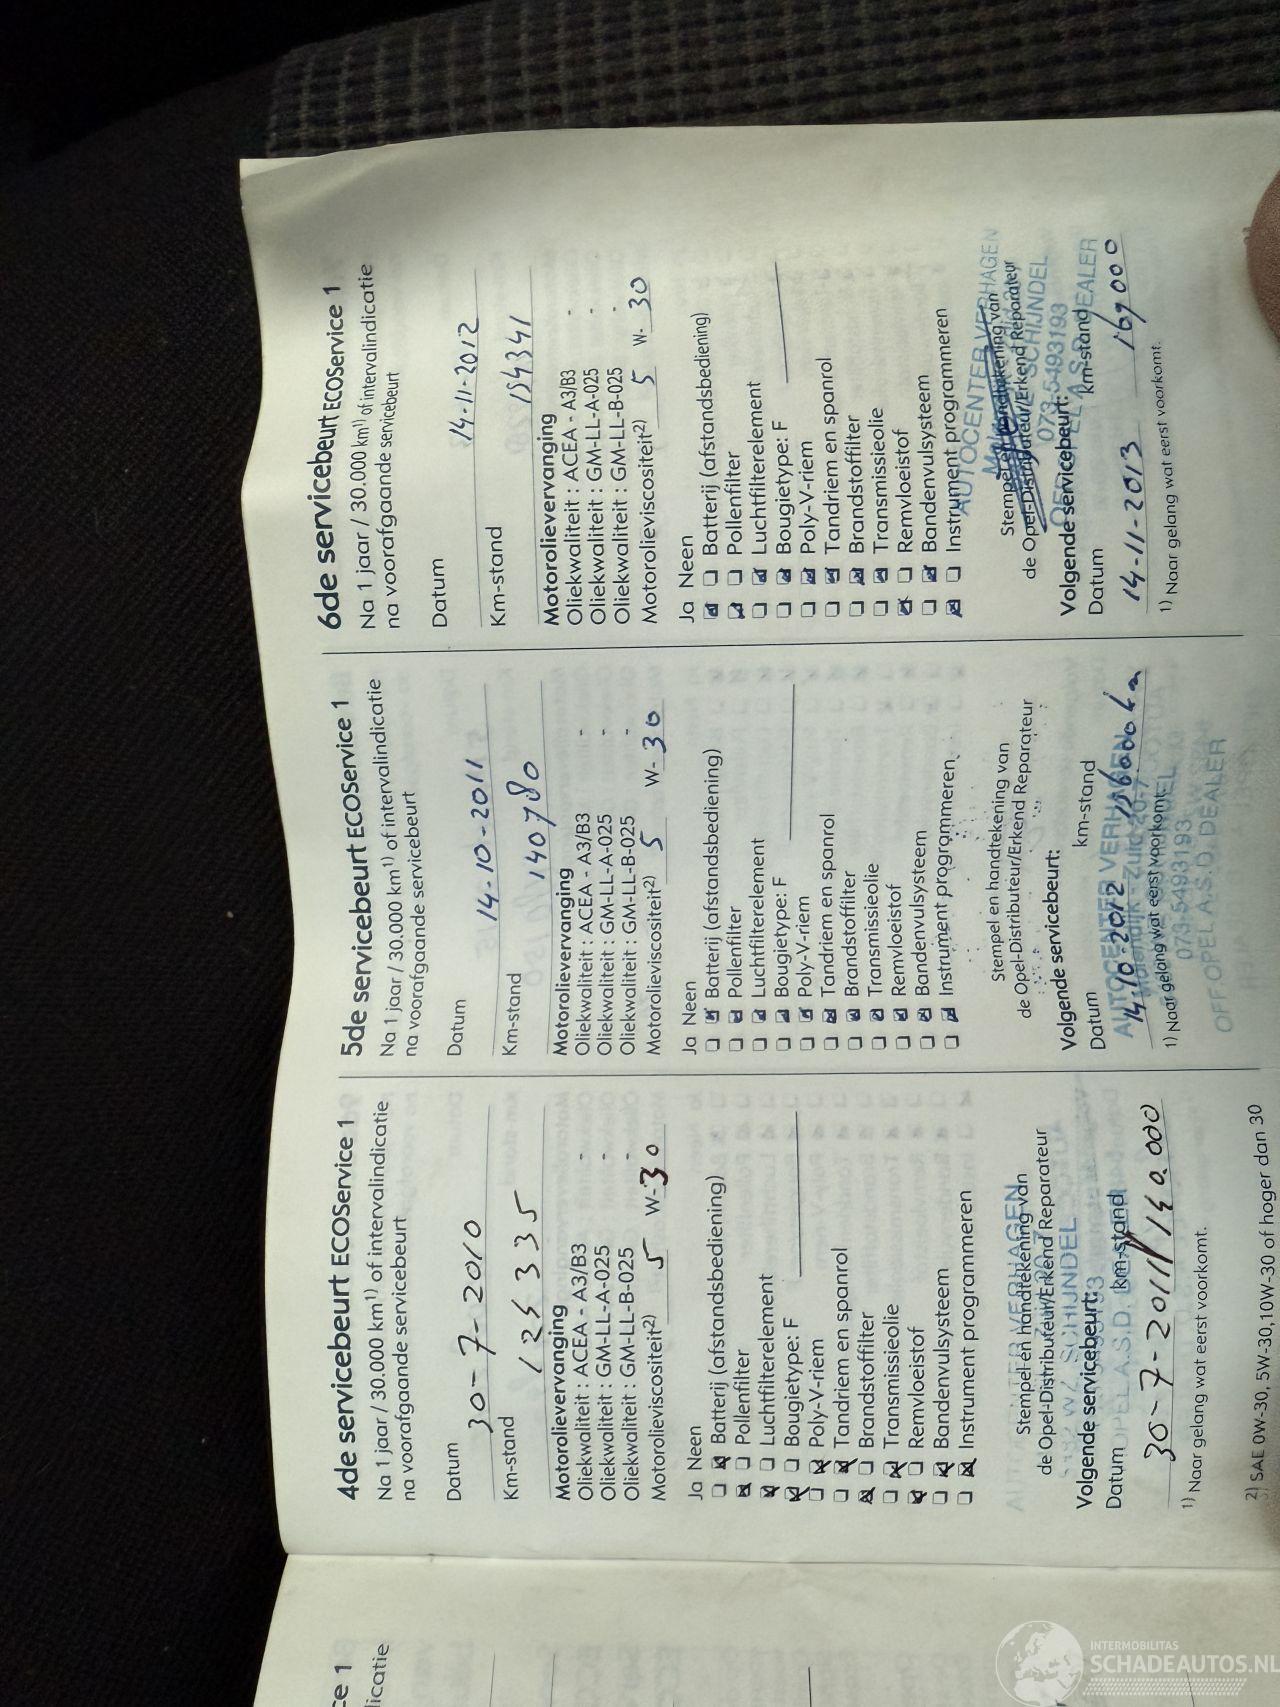 4de servicebeurt ECOService 1
Na 1 jaar / 30.000 km¹⁾ of intervalindicatie
na voorafgaande servicebeurt
Datum
30-7-2010
Km-stand
125335
Motorolievervanging
Oliekwaliteit : ACEA - A3/B3 -
Oliekwaliteit : GM-LL-A-025 -
Oliekwaliteit : GM-LL-B-025 -
Motorolieviscositeit²⁾ 5 W- 30
Ja Neen
Batterij (afstandsbediening)
Pollenfilter
Luchtfilterelement
Bougietype: F
Poly-V-riem
Tandriem en spanrol
Brandstoffilter
Transmissieolie
Remvloeistof
Bandenvulsysteem
Instrument programmeren
Stempel en handtekening van
de Opel-Distributeur/Erkend Reparateur
Volgende servicebeurt:
Datum km-stand
30-7-2011
¹⁾ Naar gelang wat eerst voorkomt.
²⁾ SAE 0W-30, 5W-30,10W-30 of hoger dan 30
5de servicebeurt ECOService 1
Na 1 jaar / 30.000 km¹⁾ of intervalindicatie
na voorafgaande servicebeurt
Datum
14-10-2011
Km-stand
140780
Motorolievervanging
Oliekwaliteit : ACEA - A3/B3 -
Oliekwaliteit : GM-LL-A-025 -
Oliekwaliteit : GM-LL-B-025 -
Motorolieviscositeit²⁾ 5 W- 30
Ja Neen
Batterij (afstandsbediening)
Pollenfilter
Luchtfilterelement
Bougietype: F
Poly-V-riem
Tandriem en spanrol
Brandstoffilter
Transmissieolie
Remvloeistof
Bandenvulsysteem
Instrument programmeren
Stempel en handtekening van
de Opel-Distributeur/Erkend Reparateur
Volgende servicebeurt:
Datum km-stand
AUTOCENTER VERHAGEN
14-10-2012 156000 km
¹⁾ Naar gelang wat eerst voorkomt.
073-5493193
OFF. OPEL A.S.D. DEALER
6de servicebeurt ECOService 1
Na 1 jaar / 30.000 km¹⁾ of intervalindicatie
na voorafgaande servicebeurt
Datum
14-11-2012
Km-stand
154341
Motorolievervanging
Oliekwaliteit : ACEA - A3/B3 -
Oliekwaliteit : GM-LL-A-025 -
Oliekwaliteit : GM-LL-B-025 -
Motorolieviscositeit²⁾ 5 W- 30
Ja Neen
Batterij (afstandsbediening)
Pollenfilter
Luchtfilterelement
Bougietype: F
Poly-V-riem
Tandriem en spanrol
Brandstoffilter
Transmissieolie
Remvloeistof
Bandenvulsysteem
Instrument programmeren
AUTOCENTER VERHAGEN
Stempel en handtekening van
de Opel-Distributeur/Erkend Reparateur
SCHIJNDEL
073-5493193
Volgende servicebeurt:
Datum km-stand
14-11-2013 169000
¹⁾ Naar gelang wat eerst voorkomt.
ce 1
licatie
INTERMOBILITAS
SCHADEAUTOS.NL